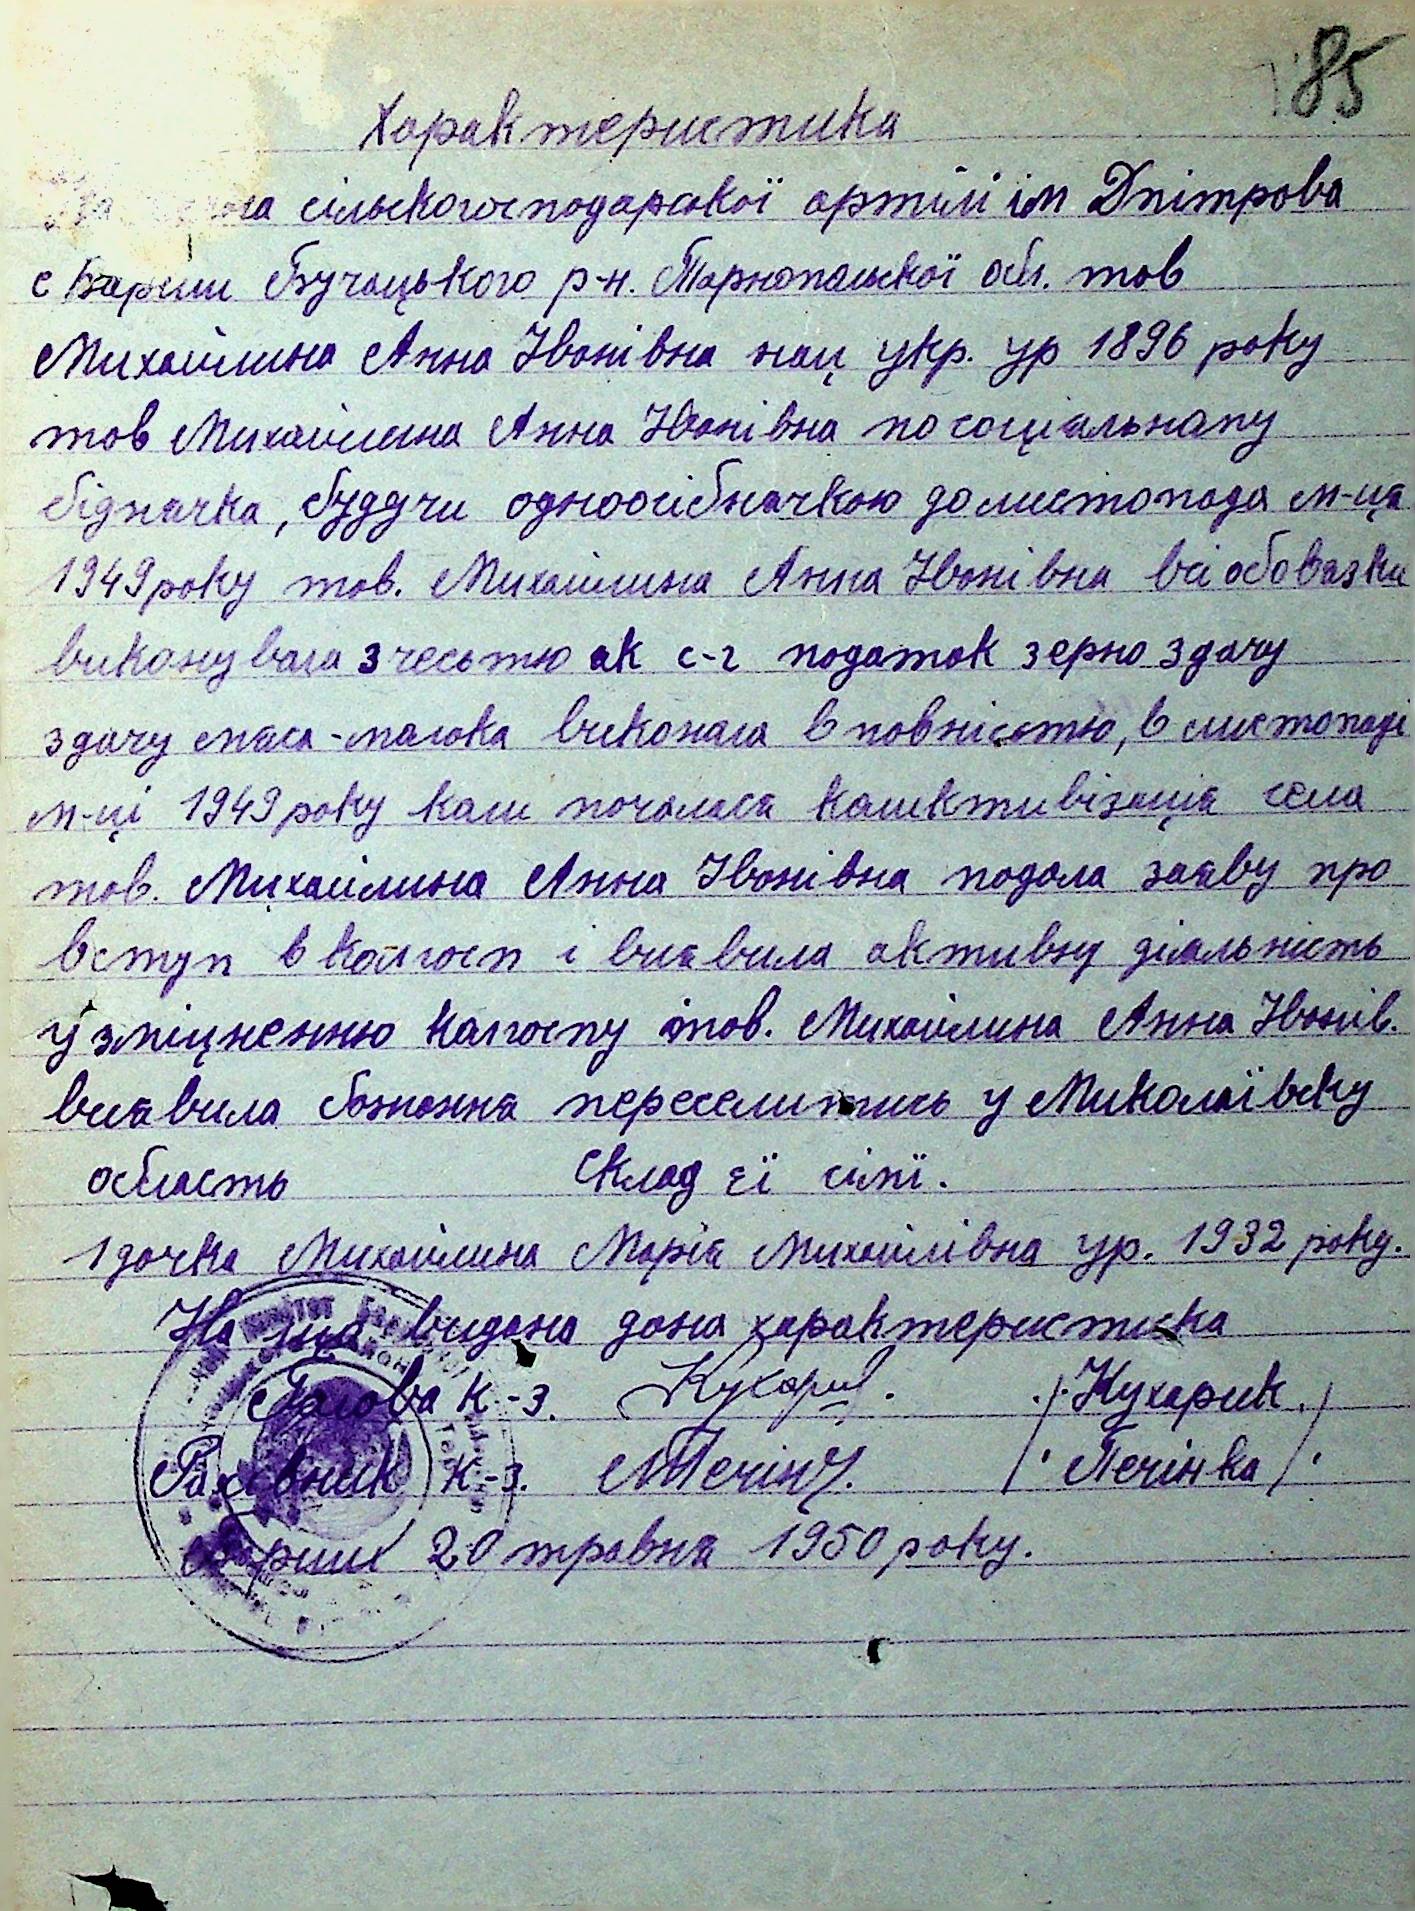 85
Характеристика
На члена сільскогосподарської артілі ім Дмітрова
с Бариш Бучацького р-н. Тарнопольскої обл. тов
Михайлина Анна Іванівна нац укр. ур 1896 року
тов Михайлина Анна Іванівна по соціальнаму
біднячка, будучи одноосібначкою до листопада м-ця
1949 року тов. Михайлина Анна Іванівна всі обовязки
виконувала з честью як с-г податок зерно здачу
здачу мяса-молока виконала в повністю, в листопаді
м-ці 1949 року коли почалася колективізація села
тов. Михайлина Анна Іванівна подала заяву про
вступ в колгосп і виявила активну діяльність
у зміцненню колгоспу тов. Михайлина Анна Іванів.
виявила бажання переселитись у Миколаївску
область Склад її сімї.
1 дочка Михайлина Марія Михайлівна ур. 1932 року.
На що видана дана характеристика
Голова к-з. Кухарик. /Кухарик./
Рахівник к-з. МПечінк. /Печінка/
Бариш 20 травня 1950 року.